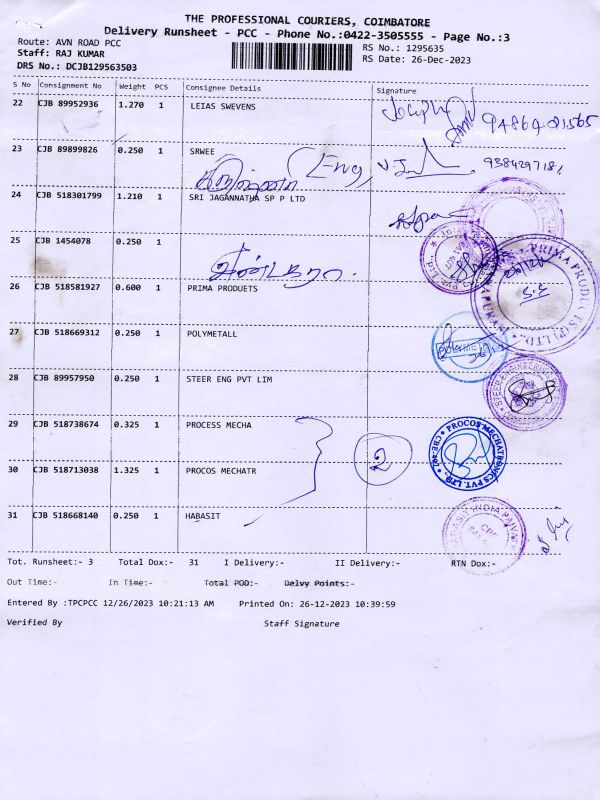 THE PROFESSIONAL COURIERS, COIMBATORE
Delivery Runsheet - PCC - Phone No.:0422-3505555 - Page No.:3
Route: AVN ROAD PCC
RS No.: 1295635
Staff: RAJ KUMAR
RS Date: 26-Dec-2023
DRS No.: DCJB129563503
S No Consignment No Weight PCS Consignee Details Signature
22 CJB 89952936 1.270 1 LEIAS SWEVENS
23 CJB 89899826 0.250 1 SRWEE
(Eng,
24 CJB 518301799 1.210 1 SRI JAGANNATHA SP P LTD
25 CJB 1454078 0.250 1
26 CJB 518581927 0.600 1 PRIMA PRODUETS
PRIMA PRODUCTS (P) LTD.,
27 CJB 518669312 0.250 1 POLYMETALL
28 CJB 89957950 0.250 1 STEER ENG PVT LIM
29 CJB 518738674 0.325 1 PROCESS MECHA
2
PROCOS MECHATRONICS PVT. LTD.,
30 CJB 518713038 1.325 1 PROCOS MECHATR
31 CJB 518668140 0.250 1 HABASIT
Tot. Runsheet:- 3 Total Dox:- 31 I Delivery:- II Delivery:- RTN Dox:-
Out Time:- In Time:- Total POD:- Delvy Points:-
Entered By :TPCPCC 12/26/2023 10:21:13 AM Printed On: 26-12-2023 10:39:59
Verified By Staff Signature